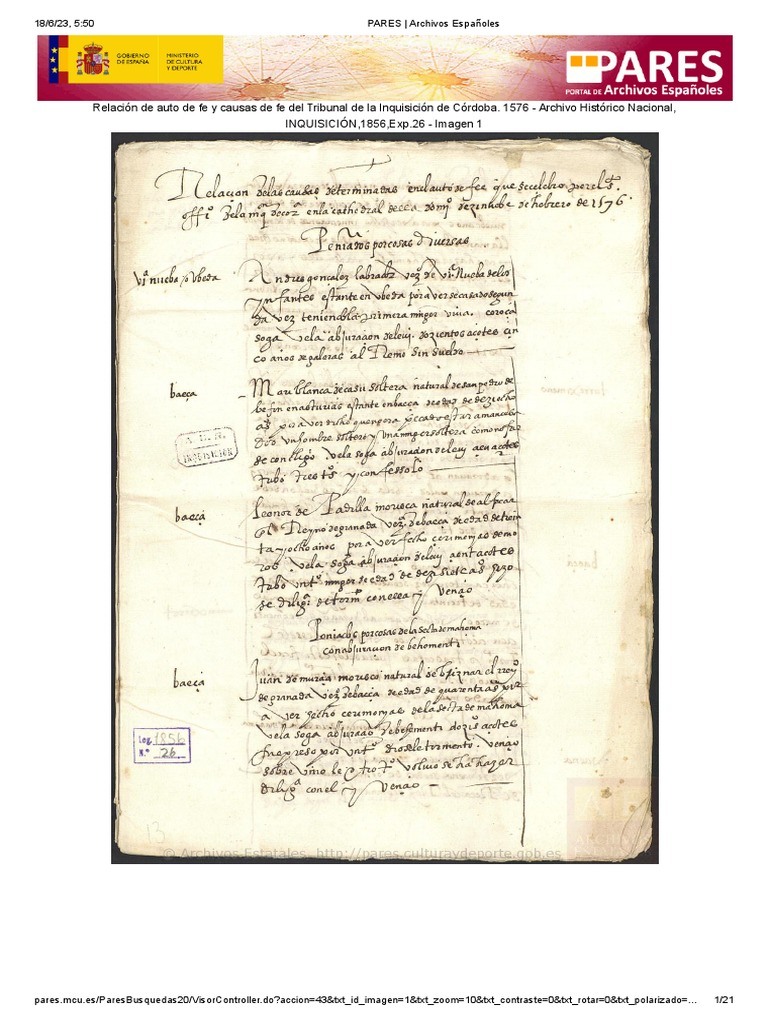 18/6/23, 5:50
PARES | Archivos Españoles
GOBIERNO DE ESPAÑA
MINISTERIO DE CULTURA Y DEPORTE
PARES
PORTAL DE Archivos Españoles
Relación de auto de fe y causas de fe del Tribunal de la Inquisición de Córdoba. 1576 - Archivo Histórico Nacional,
INQUISICIÓN,1856,Exp.26 - Imagen 1
Relaçion de las causas determinadas en el auto de fee que se celebro por el s.
offi.º de la inq.on de cor.a en la cathedral della domi.º dezinuebe de hebrero de 1576
Peniados por cosas diversas
Vi.ª nueba / Vbeda
Andres gonçalez labrador vez.º de Vi.ª Nueba de los
ynfantes estante en Vbeda por aver se casado segun
da vez teniendo la primera muger viva. coroça
soga vela abjuraçion de levi. dozientos açotes çin
co años de galeras al Remo sin sueldo
baeça
Mari blanca de casii soltera natural de san pedro de
en asturias estante en baeça de edad de
a.s por aver dicho que no era peccado estar amanceba
dos un hombre soltero y una muger soltera como no fue
se con clerigo. vela soga abjuraçion de levi açotes
tubo test.os y confesso lo
A. H. N.
INQUISICION
baeça
Leonor de Padilla morisca natural de
el Reyno de granada vez.ª de baeça de edad de trein
ta y ocho años por aver fecho cerimonias de mo
ros. vela soga abjuraçion de levi çient açotes
tubo un t.º muger de edad de diez y siete a.s hizo
se dilig.ª de torm.º con ella y Vençio
Peniados por cosas de la secta de mahoma
con abjuraçion de behementi
baeça
Juan de murçia morisco natural de the rrey.º
de granada vez.º de baeça de edad de quarenta a.s por
aver fecho cerimonias de la secta de mahoma
vela soga abjuraçion de behementi açotes
fue preso por un t.º diosele tormento. Vençio
sobre vino le otro t.º volviose ha hazer
dilig.ª con el y Vençio
Leg. 1856
N.º 26
13
© Archivos Estatales, http://pares.culturaydeporte.gob.es
pares.mcu.es/ParesBusquedas20/VisorController.do?accion=43&txt_id_imagen=1&txt_zoom=10&txt_contraste=0&txt_rotar=0&txt_polarizado=…
1/21